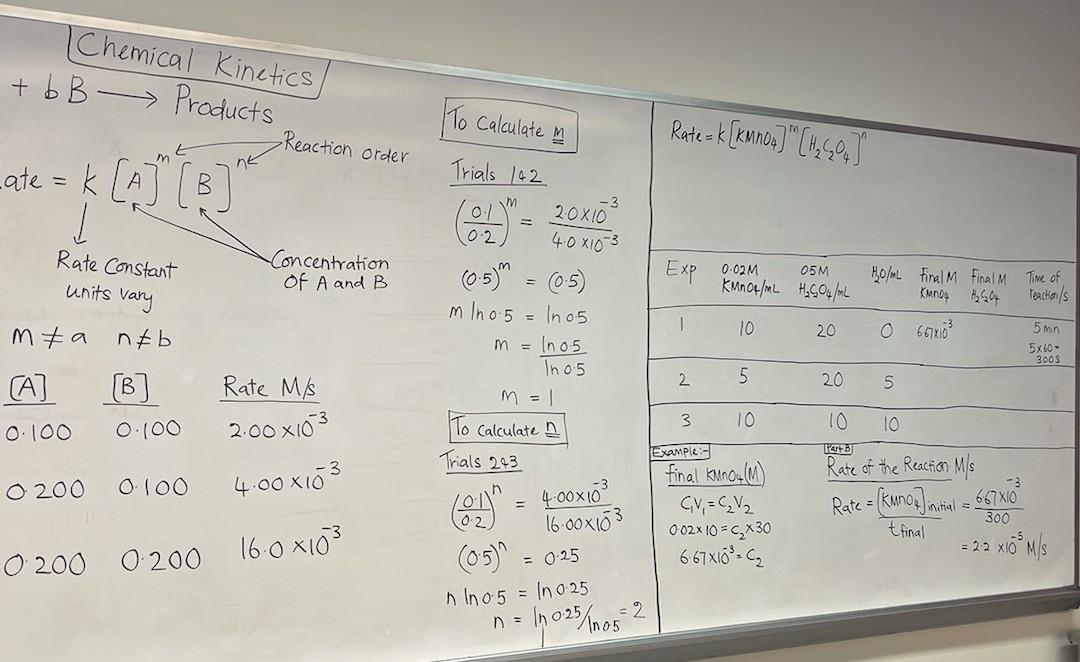 Chemical Kinetics
+ bB ⟶ Products
Reaction order
ate = k [A]^m [B]^n
Rate Constant
units vary
Concentration
Of A and B
m ≠ a n ≠ b
[A] [B] Rate M/s
0.100 0.100 2.00 × 10^-3
0.200 0.100 4.00 × 10^-3
0.200 0.200 16.0 × 10^-3
To Calculate m
Trials 1&2
(0.1/0.2)^m = 2.0 × 10^-3 / 4.0 × 10^-3
(0.5)^m = (0.5)
m ln 0.5 = ln 0.5
m = ln 0.5 / ln 0.5
m = 1
To Calculate n
Trials 2&3
(0.1/0.2)^n = 4.00 × 10^-3 / 16.00 × 10^-3
(0.5)^n = 0.25
n ln 0.5 = ln 0.25
n = ln 0.25 / ln 0.5 = 2
Rate = k [KMnO4]^m [H2C2O4]^n
Exp 0.02M KMnO4/mL 0.5M H2C2O4/mL H2O/mL Final M KMnO4 Final M H2C2O4 Time of reaction/s
1 10 20 0 6.67×10^-3 5 min
5×60=
300s
2 5 20 5
3 10 10 10
Example:-
final KMnO4 (M)
C1V1 = C2V2
0.02 × 10 = C2 × 30
6.67 × 10^-3 = C2
Part B
Rate of the Reaction M/s
Rate = [KMnO4] initial / t final = 6.67 × 10^-3 / 300
= 2.2 × 10^-5 M/s